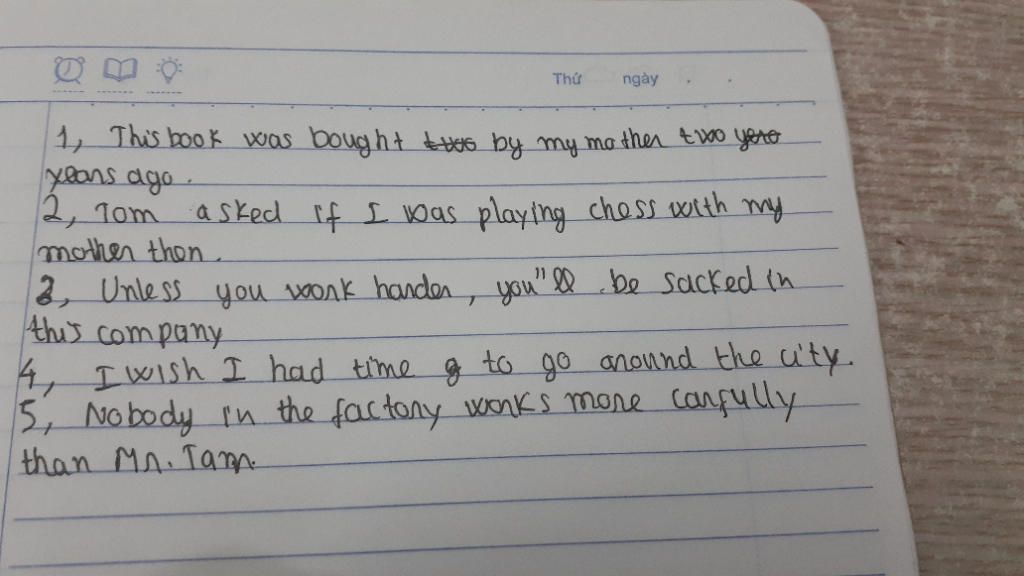 Thứ ngày . .
1, This book was bought two by my mother two yero
years ago.
2, Tom asked if I was playing chess with my
mother then.
3, Unless you work harder, you"ll be sacked in
this company
4, I wish I had time g to go around the city.
5, Nobody in the factory works more carfully
than Mr. Tam.